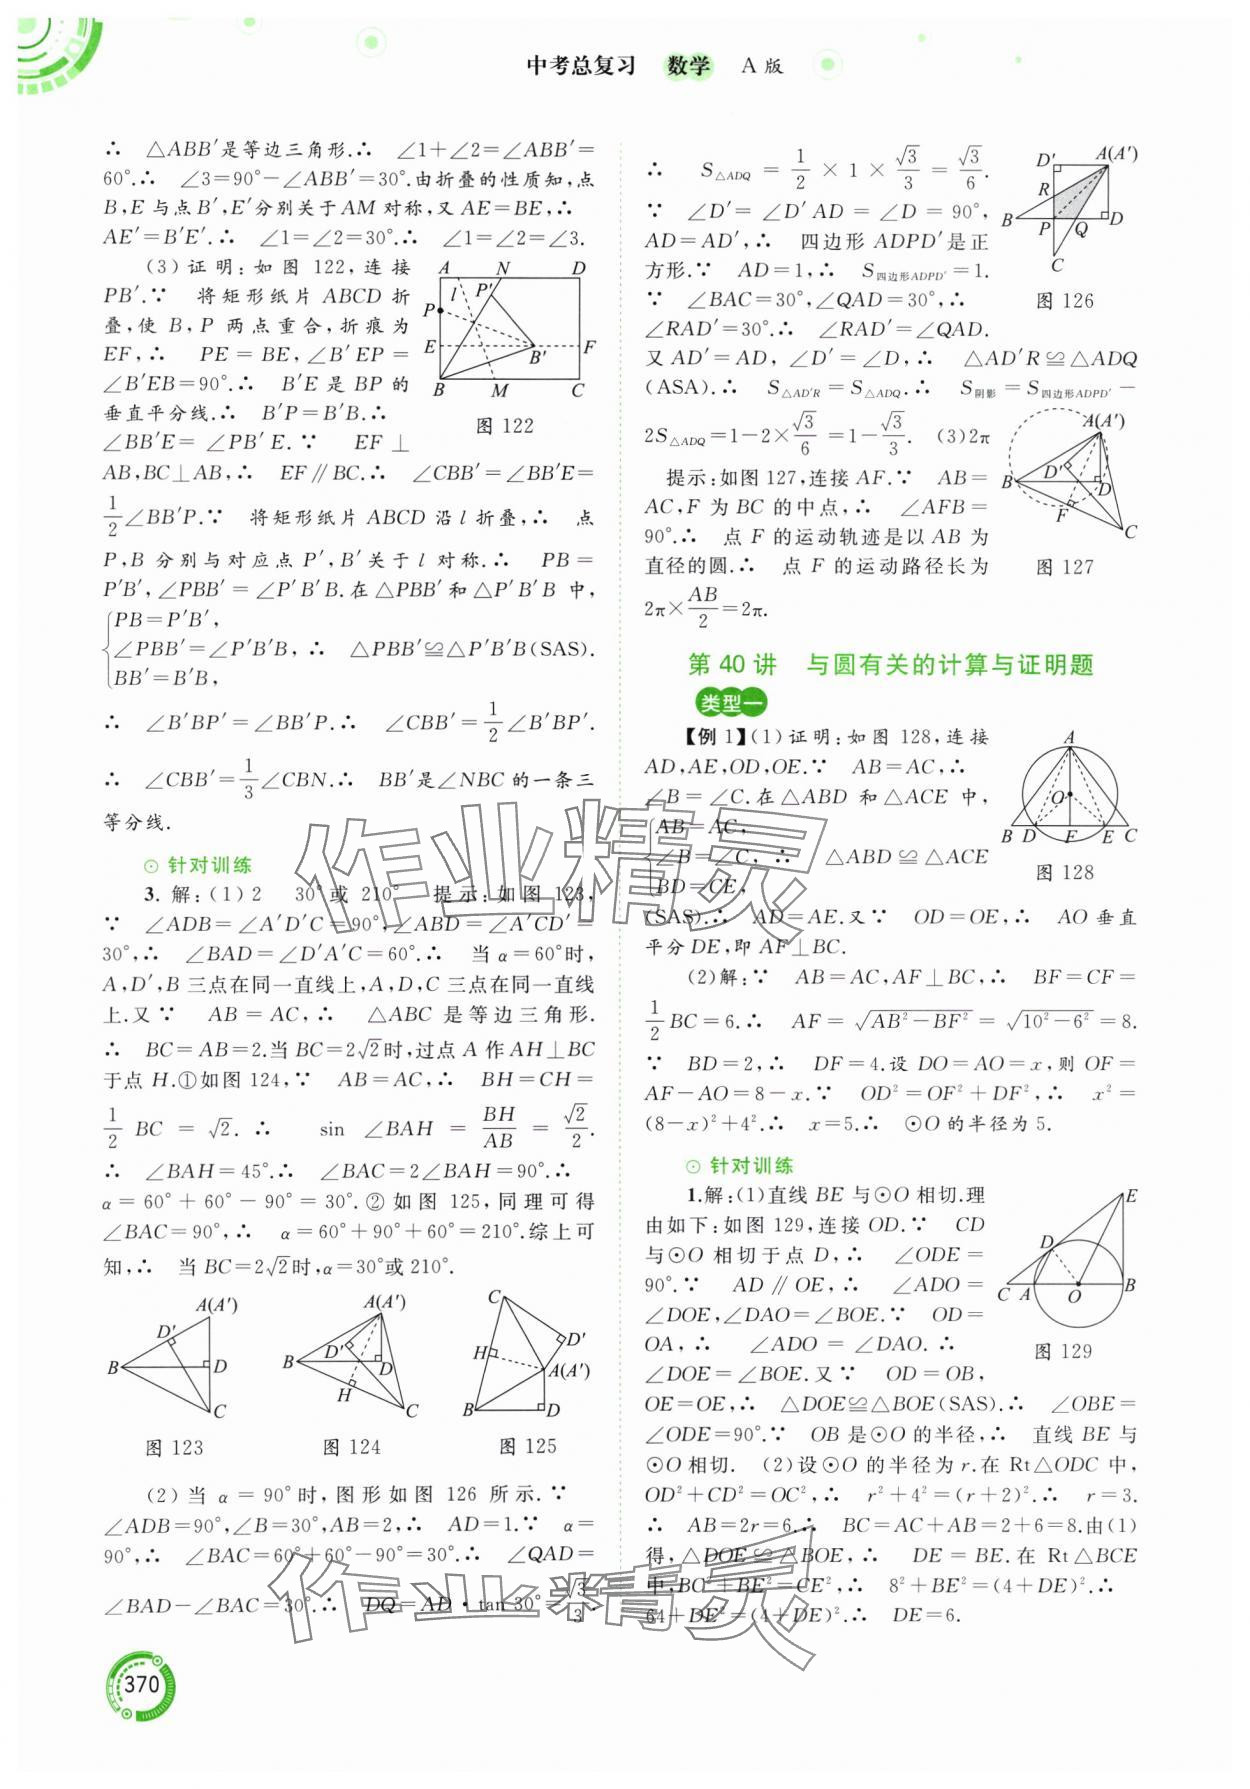 中考总复习 数学 A版
∴ △ABB′是等边三角形.∴ ∠1+∠2=∠ABB′=
60°.∴ ∠3=90°-∠ABB′=30°.由折叠的性质知,点
B,E与点B′,E′分别关于AM对称,又AE=BE,∴
AE′=B′E′.∴ ∠1=∠2=30°.∴ ∠1=∠2=∠3.
(3)证明:如图122,连接
PB′.∵ 将矩形纸片ABCD折
叠,使B,P两点重合,折痕为
EF,∴ PE=BE,∠B′EP=
∠B′EB=90°.∴ B′E是BP的
垂直平分线.∴ B′P=B′B.∴
∠BB′E=∠PB′E.∵ EF⊥
AB,BC⊥AB,∴ EF∥BC.∴ ∠CBB′=∠BB′E=
1/2∠BB′P.∵ 将矩形纸片ABCD沿l折叠,∴ 点
P,B分别与对应点P′,B′关于l对称.∴ PB=
P′B′,∠PBB′=∠P′B′B.在△PBB′和△P′B′B中,
PB=P′B′,
∠PBB′=∠P′B′B,∴ △PBB′≌△P′B′B(SAS).
BB′=B′B,
∴ ∠B′BP′=∠BB′P.∴ ∠CBB′=1/2∠B′BP′.
∴ ∠CBB′=1/3∠CBN.∴ BB′是∠NBC的一条三
等分线.
A N D
P′
l
P
E B′ F
B M C
图122
针对训练
3.解:(1)2 30°或210° 提示:如图123,
∵ ∠ADB=∠A′D′C=90°,∠ABD=∠A′CD′=
30°,∴ ∠BAD=∠D′A′C=60°.∴ 当α=60°时,
A,D′,B三点在同一直线上,A,D,C三点在同一直线
上.又∵ AB=AC,∴ △ABC是等边三角形.
∴ BC=AB=2.当BC=2√2时,过点A作AH⊥BC
于点H.①如图124,∵ AB=AC,∴ BH=CH=
1/2 BC=√2.∴ sin∠BAH=BH/AB=√2/2.
∴ ∠BAH=45°.∴ ∠BAC=2∠BAH=90°.∴
α=60°+60°-90°=30°.②如图125,同理可得
∠BAC=90°,∴ α=60°+90°+60°=210°.综上可
知,∴ 当BC=2√2时,α=30°或210°.
A(A′)
D′
B D
C
图123
A(A′)
D′
B D
H C
图124
C
D′
H
A(A′)
B D
图125
(2)当α=90°时,图形如图126所示.∵
∠ADB=90°,∠B=30°,AB=2,∴ AD=1.∵ α=
90°,∴ ∠BAC=60°+60°-90°=30°.∴ ∠QAD=
∠BAD-∠BAC=30°.∴ DQ=AD·tan 30°=√3/3.
370
∴ S△ADQ=1/2×1×√3/3=√3/6.
∵ ∠D′=∠D′AD=∠D=90°,
AD=AD′,∴ 四边形ADPD′是正
方形.∵ AD=1,∴ S四边形ADPD′=1.
∵ ∠BAC=30°,∠QAD=30°,∴
∠RAD′=30°.∴ ∠RAD′=∠QAD.
又AD′=AD,∠D′=∠D,∴ △AD′R≌△ADQ
(ASA).∴ S△AD′R=S△ADQ.∴ S阴影=S四边形ADPD′-
2S△ADQ=1-2×√3/6=1-√3/3. (3)2π
提示:如图127,连接AF.∵ AB=
AC,F为BC的中点,∴ ∠AFB=
90°.∴ 点F的运动轨迹是以AB为
直径的圆.∴ 点F的运动路径长为
2π×AB/2=2π.
D′ A(A′)
R
B P Q D
C
图126
A(A′)
D′
B D
F
C
图127
第40讲 与圆有关的计算与证明题
类型一
【例1】(1)证明:如图128,连接
AD,AE,OD,OE.∵ AB=AC,∴
∠B=∠C.在△ABD和△ACE中,
AB=AC,
∠B=∠C,∴ △ABD≌△ACE
BD=CE,
(SAS).∴ AD=AE.又∵ OD=OE,∴ AO垂直
平分DE,即AF⊥BC.
(2)解:∵ AB=AC,AF⊥BC,∴ BF=CF=
1/2BC=6.∴ AF=√(AB²-BF²)=√(10²-6²)=8.
∵ BD=2,∴ DF=4.设DO=AO=x,则OF=
AF-AO=8-x.∵ OD²=OF²+DF²,∴ x²=
(8-x)²+4².∴ x=5.∴ ⊙O的半径为5.
A
O
B D F E C
图128
针对训练
1.解:(1)直线BE与⊙O相切.理
由如下:如图129,连接OD.∵ CD
与⊙O相切于点D,∴ ∠ODE=
90°.∵ AD∥OE,∴ ∠ADO=
∠DOE,∠DAO=∠BOE.∵ OD=
OA,∴ ∠ADO=∠DAO.∴
∠DOE=∠BOE.又∵ OD=OB,
OE=OE,∴ △DOE≌△BOE(SAS).∴ ∠OBE=
∠ODE=90°.∵ OB是⊙O的半径,∴ 直线BE与
⊙O相切. (2)设⊙O的半径为r.在Rt△ODC中,
OD²+CD²=OC²,∴ r²+4²=(r+2)².∴ r=3.
∴ AB=2r=6.∴ BC=AC+AB=2+6=8.由(1)
得,△DOE≌△BOE,∴ DE=BE.在Rt△BCE
中,BC²+BE²=CE²,∴ 8²+BE²=(4+DE)².∴
64+DE²=(4+DE)².∴ DE=6.
E
D
C A O B
图129
作业精灵
作业精灵